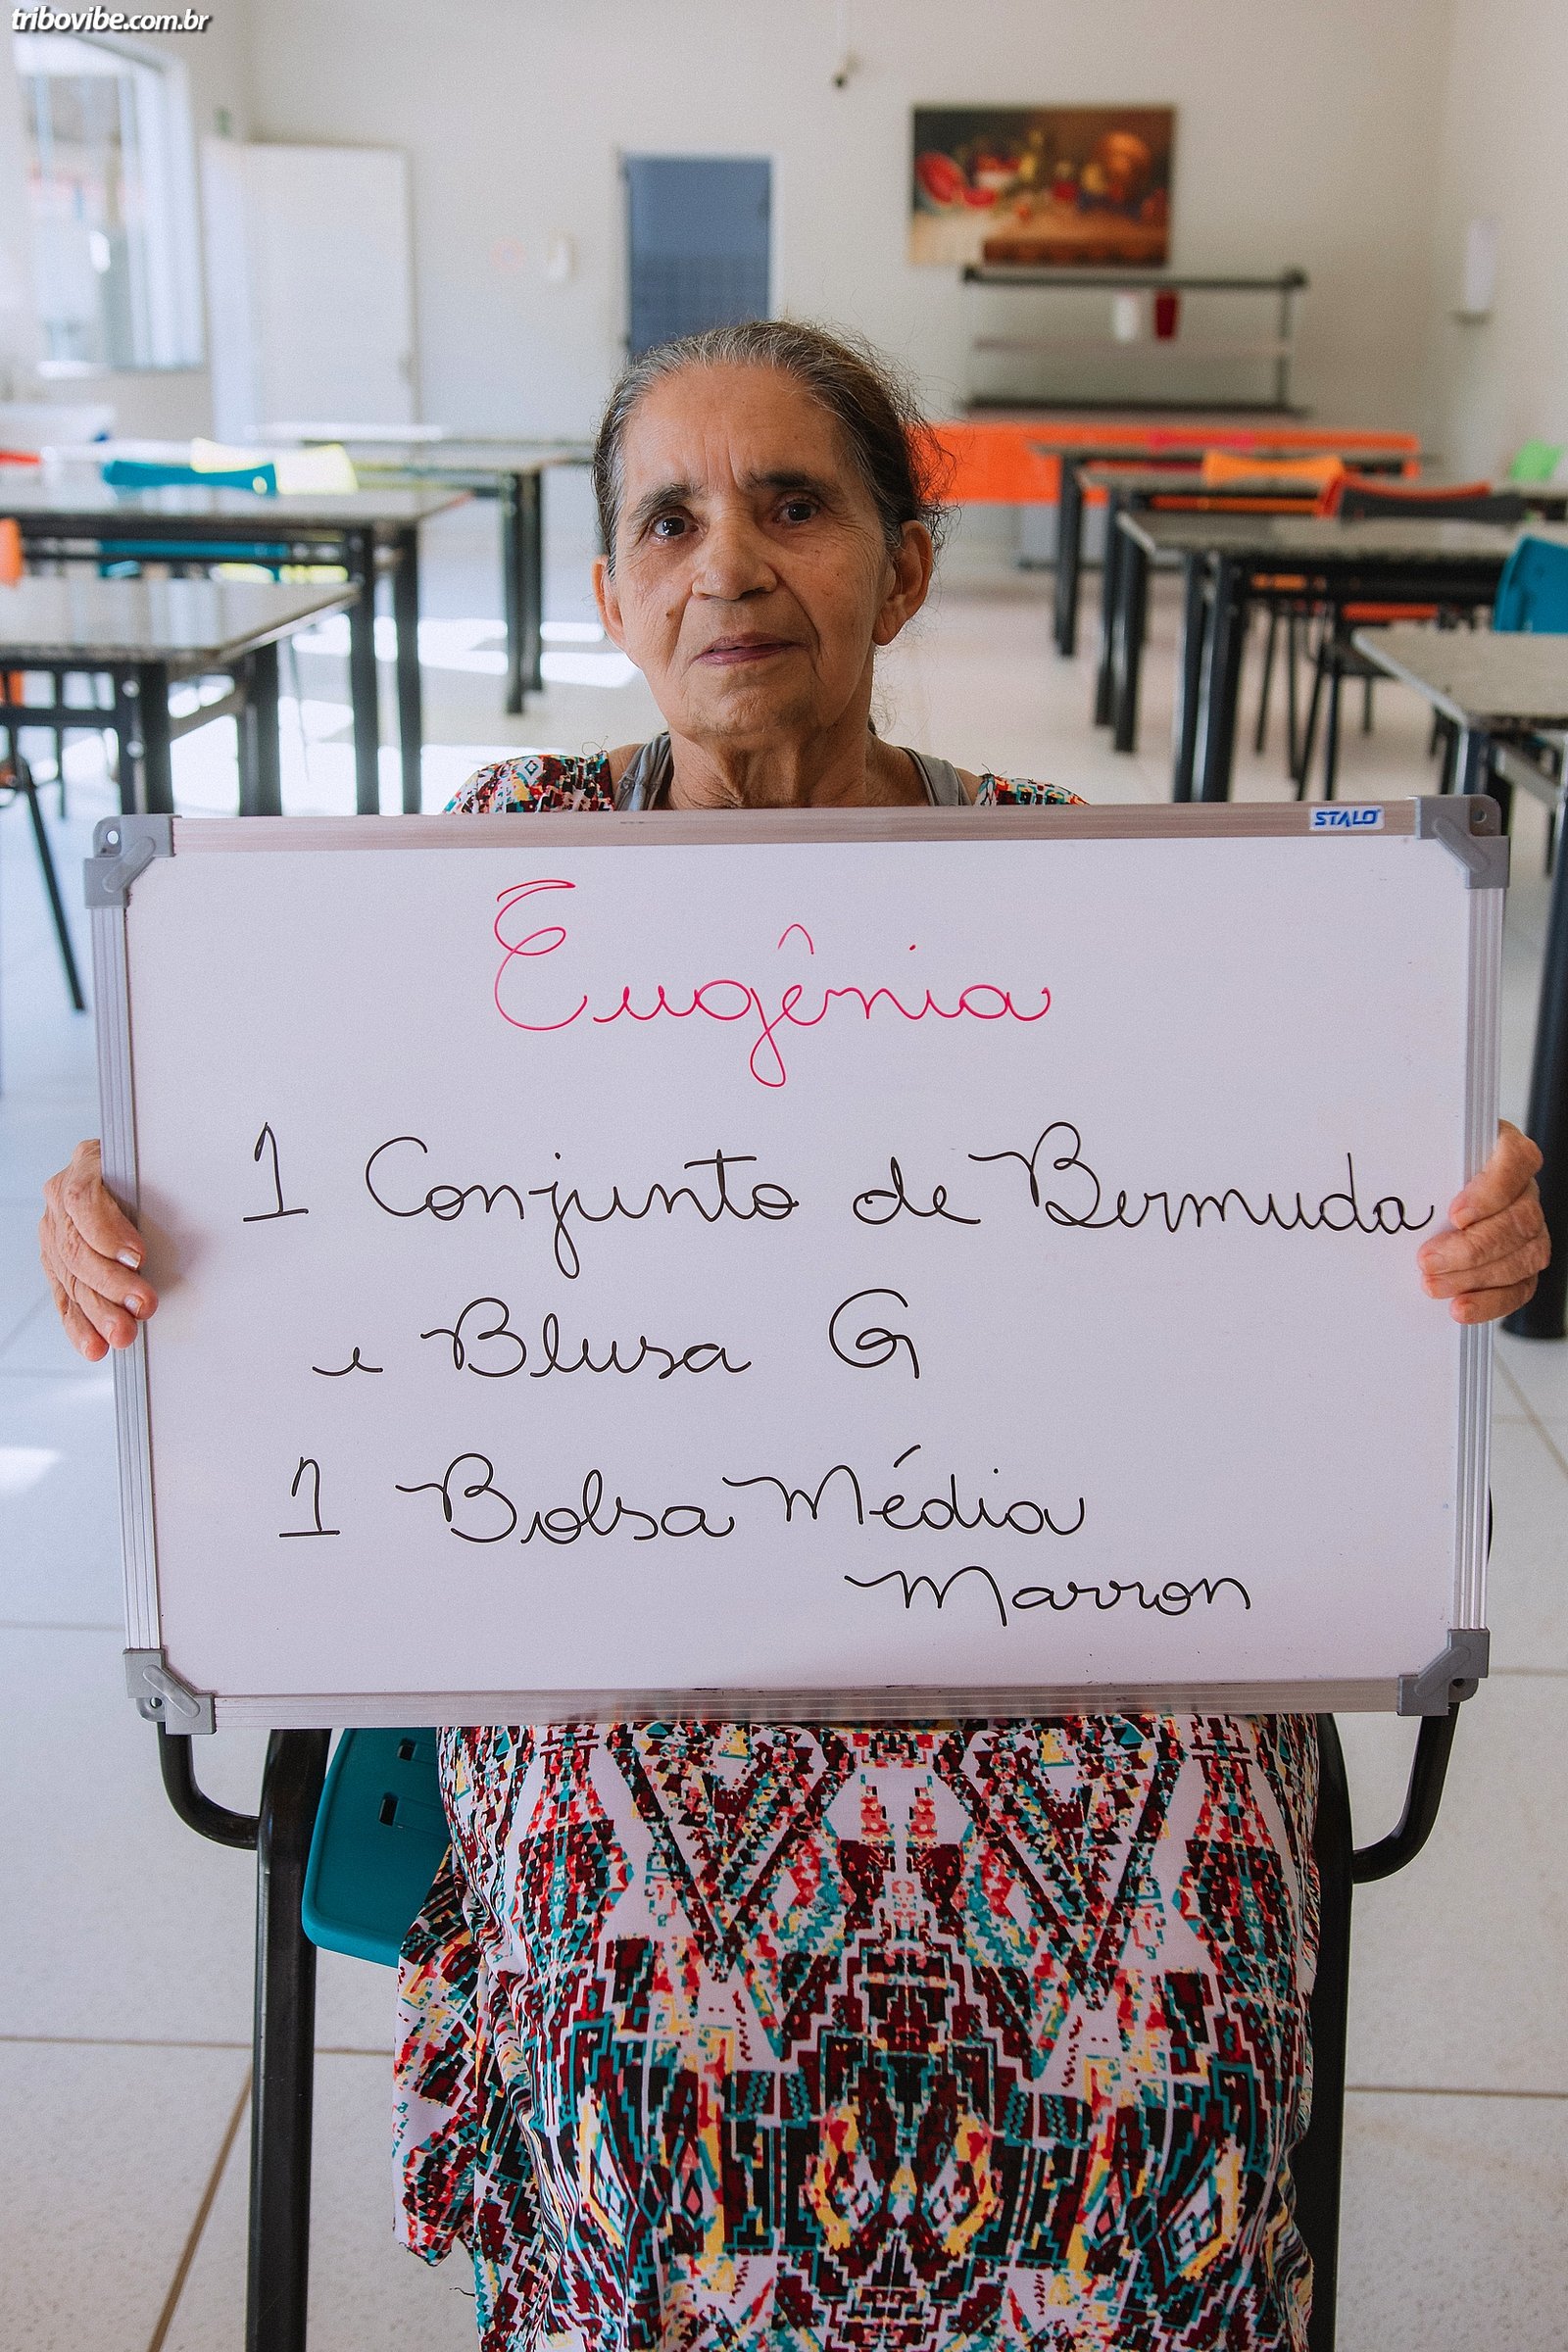 tribovibe.com.br
STALO
Eugênia
1 Conjunto de Bermuda
e Blusa G
1 Bolsa Média
Marron